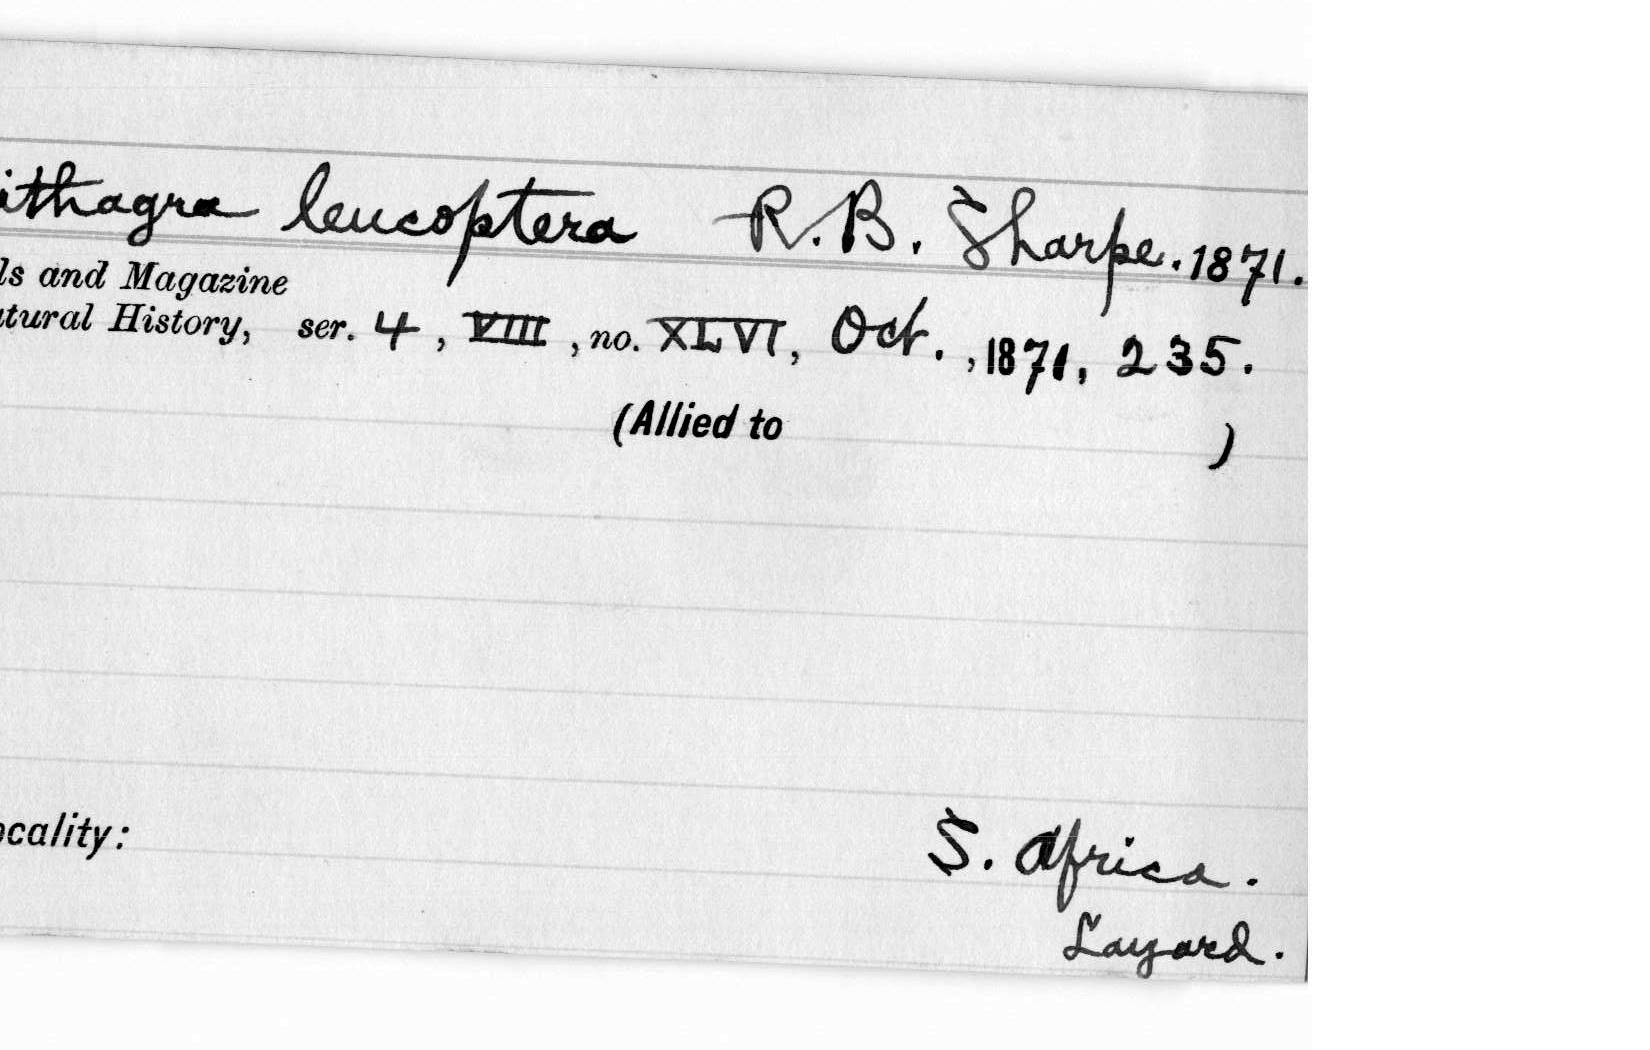 ithagra leucoptera R. B. Sharpe. 1871.
ls and Magazine
tural History, ser. 4, VIII, no. XLVI, Oct., 1871, 235.
(Allied to )
ocality: S. Africa.
Layard.